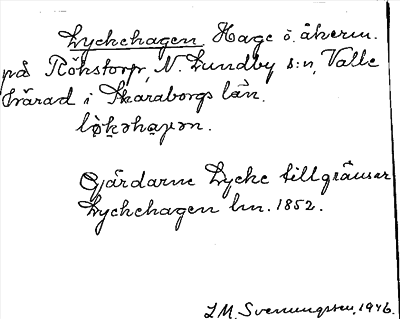 Lyckehagen Hage o. åkerm.
på Rökstorp, N. Lundby s:n, Valle
härad i Skaraborgs län.
Gärdarne Lycke tillgränsar
Lyckehagen lm. 1852.
L.M. Svenungsson, 1946.